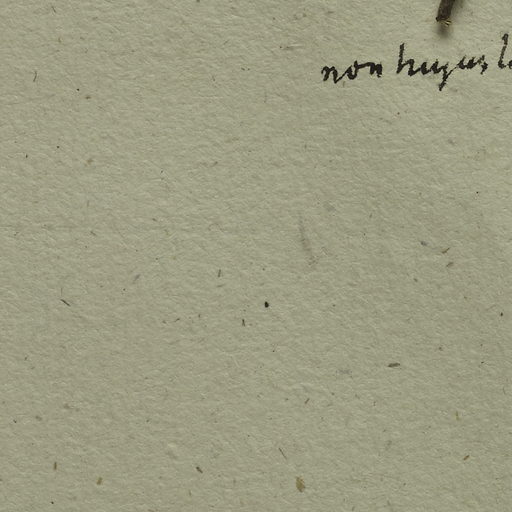 non hujus l